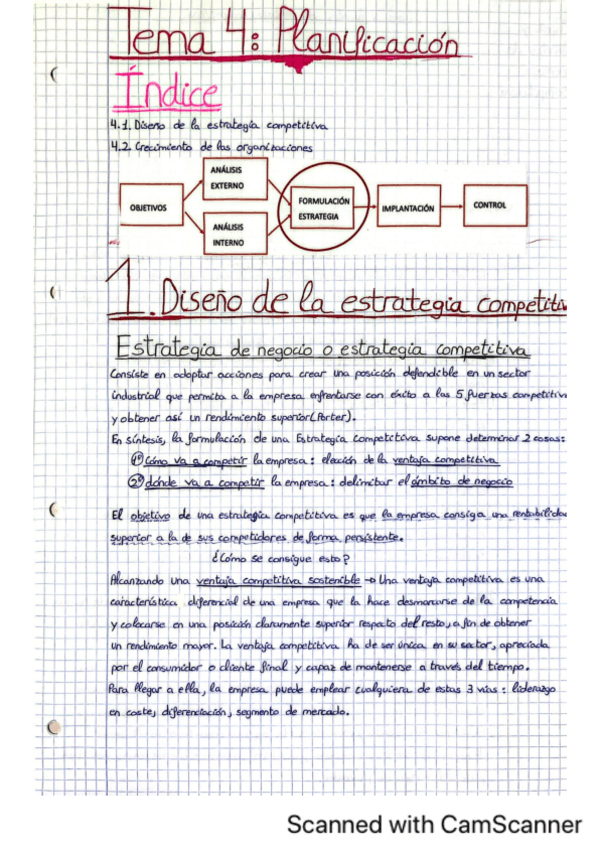 Tema 4: Planificación
Índice
4.1. Diseño de la estrategia competitiva
4.2. Crecimiento de las organizaciones
OBJETIVOS
ANÁLISIS
EXTERNO
ANÁLISIS
INTERNO
FORMULACIÓN
ESTRATEGIA
IMPLANTACIÓN
CONTROL
1. Diseño de la estrategia competitiv
Estrategia de negocio o estrategia competitiva
Consiste en adoptar acciones para crear una posición defendible en un sector
industrial que permita a la empresa enfrentarse con éxito a las 5 fuerzas competitiv
y obtener así un rendimiento superior (Porter).
En síntesis, la formulación de una Estrategia Competitiva supone determinar 2 cosas:
1º Cómo va a competir la empresa: elección de la ventaja competitiva
2º dónde va a competir la empresa: delimitar el ámbito de negocio
El objetivo de una estrategia competitiva es que la empresa consiga una rentabilidad
superior a la de sus competidores de forma persistente.
¿Cómo se consigue esto?
Alcanzando una ventaja competitiva sostenible → Una ventaja competitiva es una
característica diferencial de una empresa que la hace desmarcarse de la competencia
y colocarse en una posición claramente superior respecto del resto, a fin de obtener
un rendimiento mayor. La ventaja competitiva ha de ser única en su sector, apreciada
por el consumidor o cliente final y capaz de mantenerse a través del tiempo.
Para llegar a ella, la empresa puede emplear cualquiera de estas 3 vías: liderazgo
en coste, diferenciación, segmento de mercado.
Scanned with CamScanner